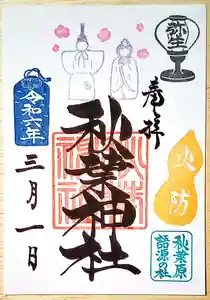 弥生
奉拝
火防
秋葉神社
秋葉原
語源の社
令和六年
三月一日